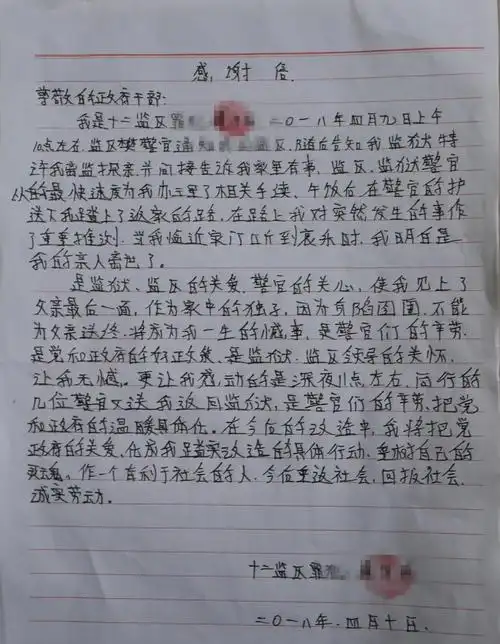 感谢信
尊敬的政府干部:
我是十二监区罪犯 二〇一八年四月九日上午
10点左右,监区樊警官通知 监区,随后告知我监狱特
许我离监探亲,并间接告诉我家里有事,监区、监狱警官
以的最快速度为我办理了相关手续,午饭后在警官的护
送下我踏上了返家的路,在路上我对突然发生的事作
了重重推测,当我临近家门听到哀乐时,我明白是
我的亲人离世了。
是监狱、监区的关爱,警官的关心,使我见上了
父亲最后一面,作为家中的独子,因为身陷囹圄,不能
为父亲送终,将成为我一生的憾事,是警官们的辛劳,
是党和政府的好政策,是监狱、监区领导的关怀,
让我无憾。更让我感动的是深夜11点左右,同行的
几位警官又送我返回监狱,是警官们的辛劳,把党
和政府的温暖具体化。在今后的改造中,我将把党
政府的关爱,化成我踏实改造的具体行动,重树自己的
灵魂。作一个有利于社会的人,今后重返社会,回报社会,
诚实劳动。
十二监区罪犯:
二〇一八年.四月十日.